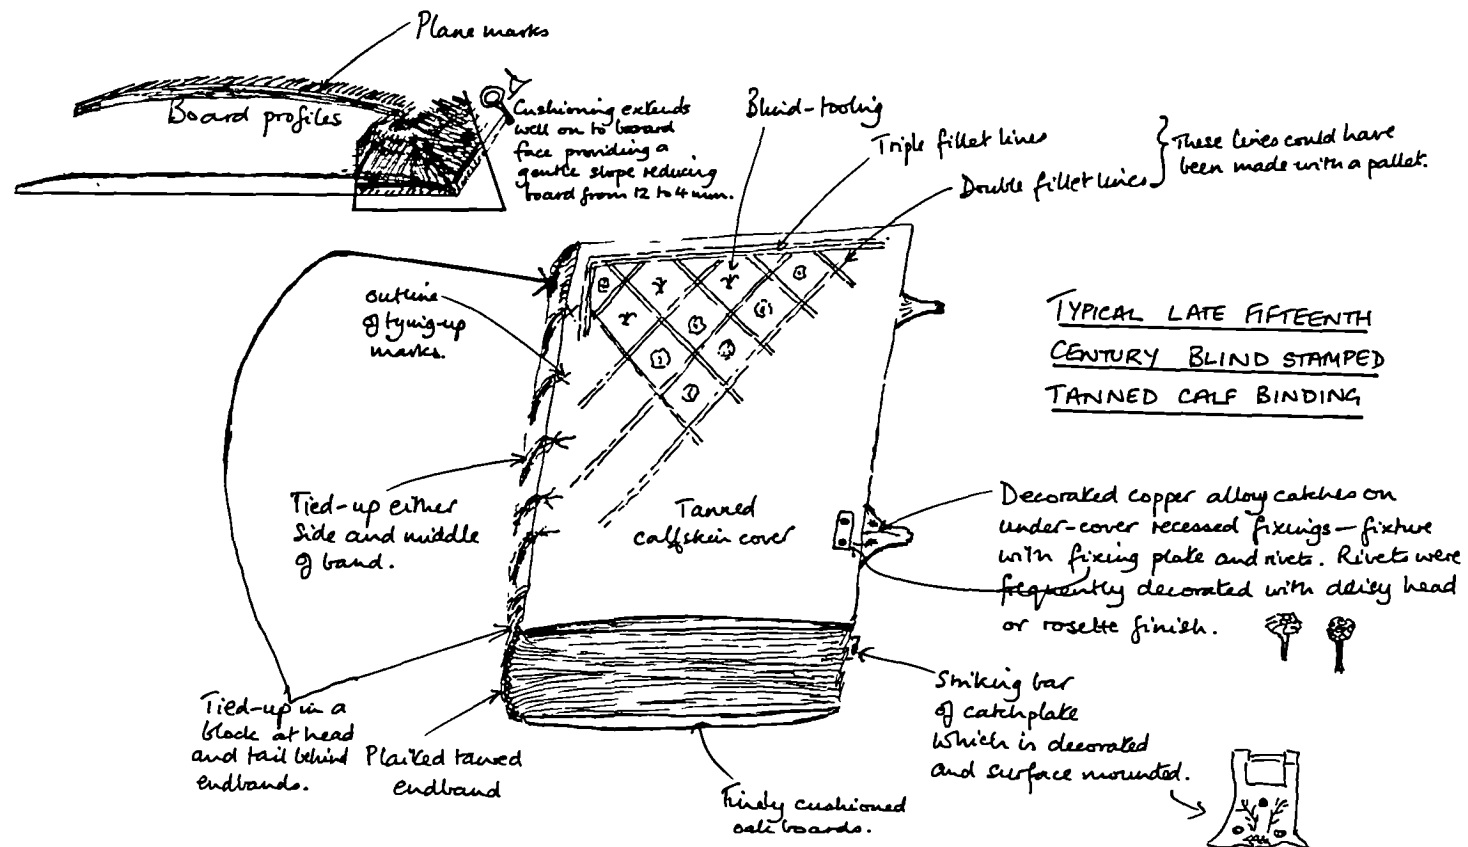 Plane marks
Board profiles
Cushioning extends
well on to board
face providing a
gentle slope reducing
board from 12 to 4 mm.
Blind-tooling
Triple fillet lines
Double fillet lines
These lines could have
been made with a pallet.
outline
of tying-up
marks.
TYPICAL LATE FIFTEENTH
CENTURY BLIND STAMPED
TANNED CALF BINDING
Tied-up either
side and middle
of band.
Tanned
calfskin cover
Decorated copper alloy catches on
under-cover recessed fixings – fixture
with fixing plate and rivets. Rivets were
frequently decorated with daisy head
or rosette finish.
Tied-up in a
block at head
and tail behind
endbands.
Plaited tawed
endband
Finely cushioned
oak boards.
Striking bar
of catchplate
which is decorated
and surface mounted.